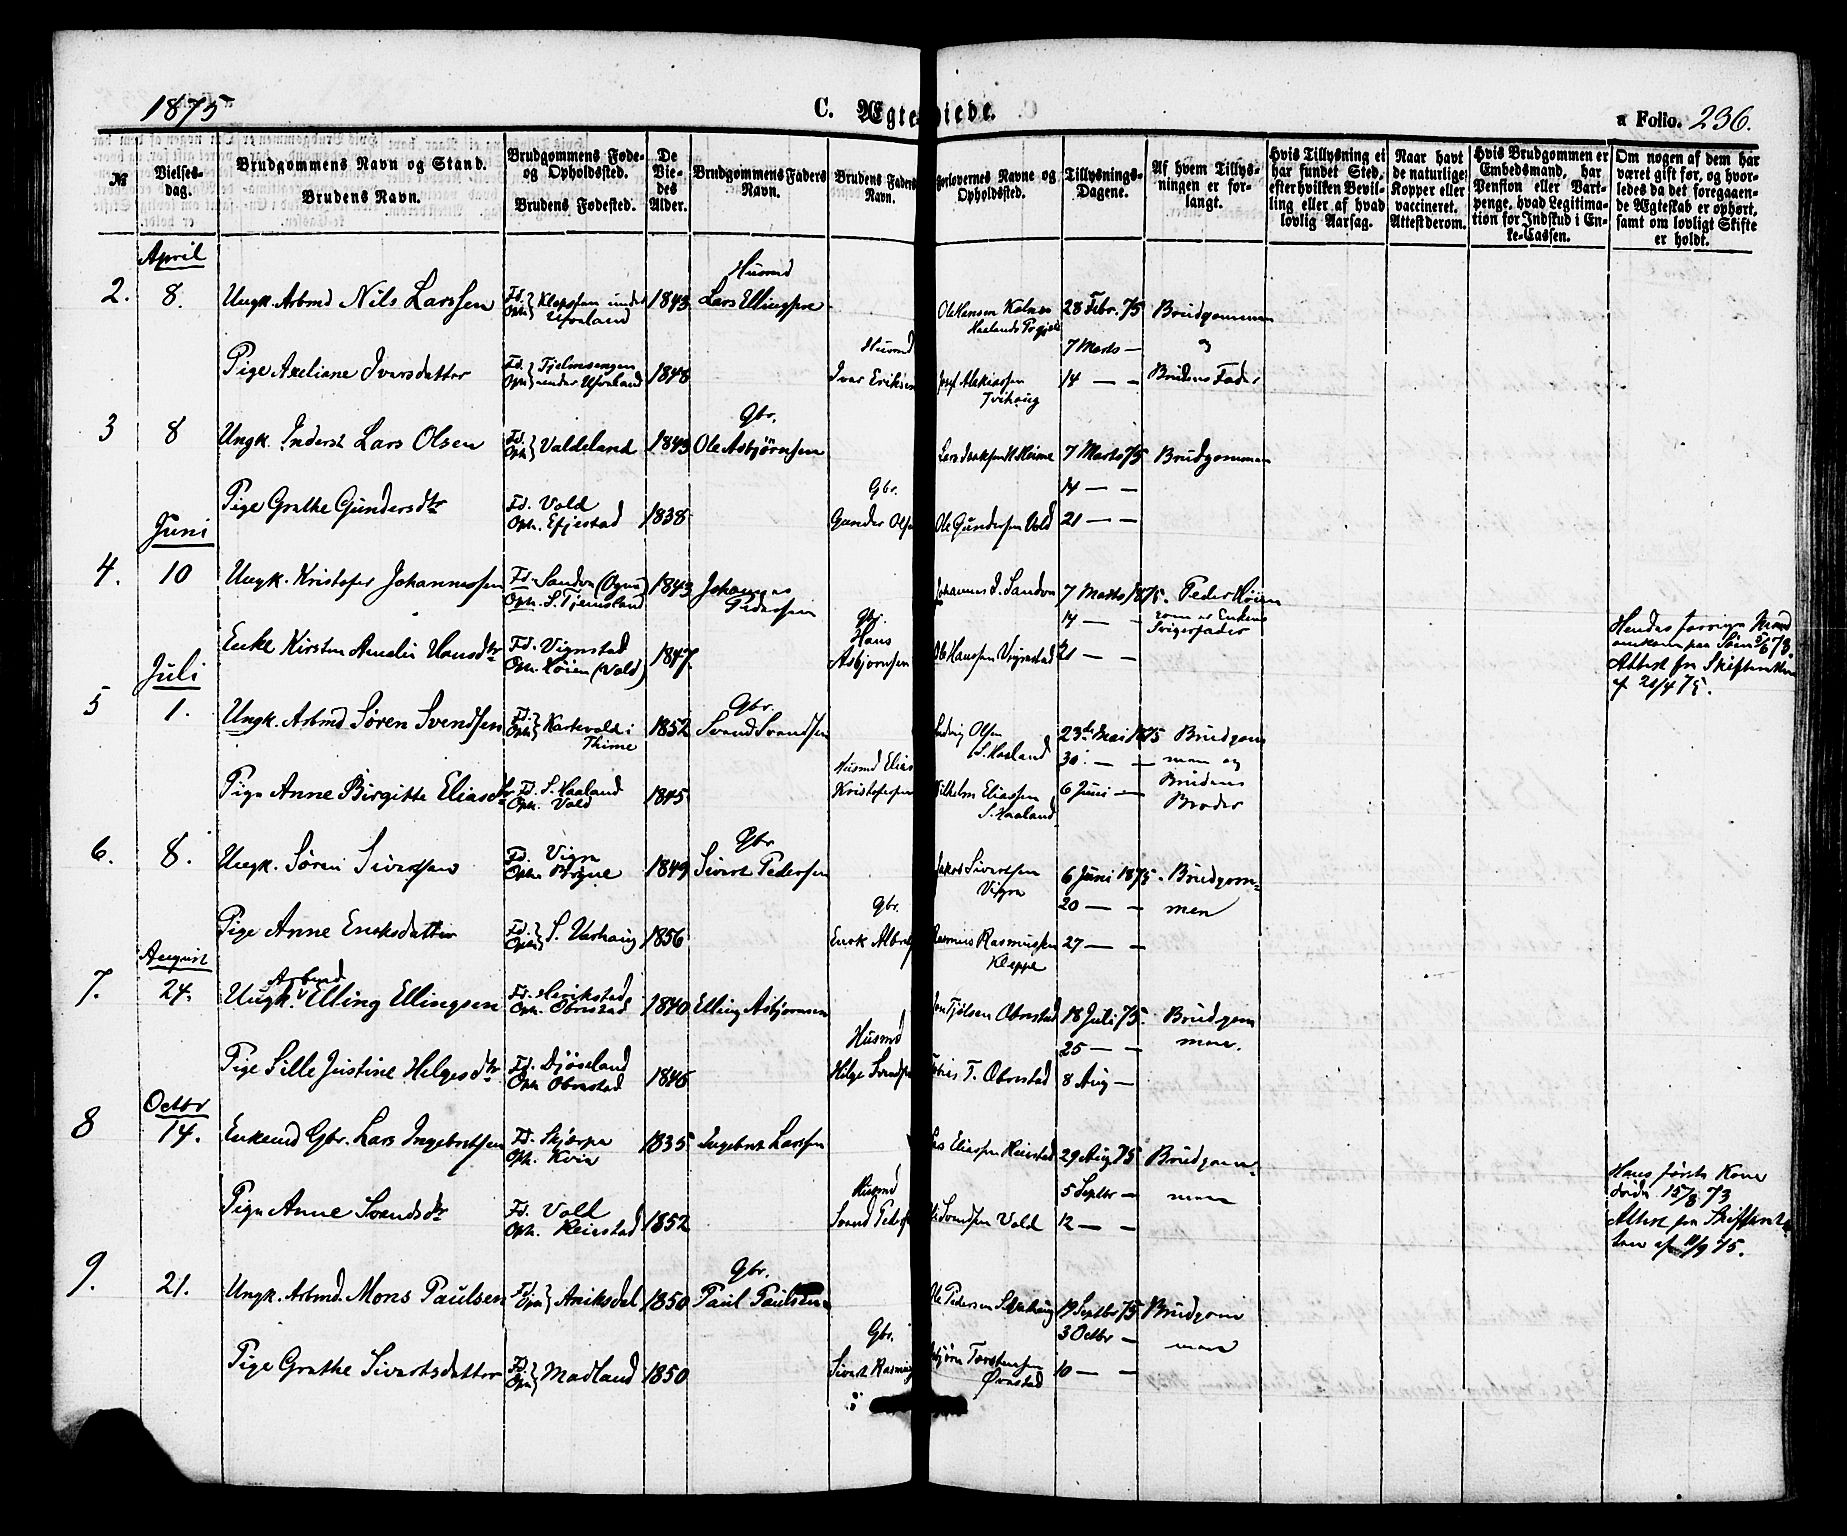 1875
C. Ægteviede.
a Folio. 236.
№
Vielses-
dag.
Brudgommens Navn og Stand.
Brudens Navn.
Brudgommens Føde-
og Opholdssted.
Brudens Fødested.
De
Vie-
des
Alder.
Brudgommens Faders
Navn.
Brudens Faders
Navn.
Forlovernes Navne og
Opholdssted.
Tillysnings-
Dagene.
Af hvem Tillys-
ningen er for-
langt.
Hvis Tillysning ei
har fundet Sted,
efter hvilken Bevil-
ling eller af hvad
lovlig Aarsag.
Naar havt
de naturlige
Kopper eller
vaccineret.
Attest derom.
Hvis Brudgommen er
Embedsmand, har
Pension eller Vart-
penge, hvad Legitima-
tion for Indskud i En-
ke-Cassen.
Om nogen af dem har
været gift før, og hvor-
ledes da det foregaaen-
de Ægteskab er ophørt,
samt om lovligt Skifte
er holdt.
April
2. 8. Ungk. Arbmd Nils Larssen
Fd. Oph. under
1843
Husmd
Lars Ellingsen
Ole Hansen
28 Febr. 75
Brudgommen
og
7 Marts —
Pige Axeliane Ivarsdatter
Fd. Oph. Tjelmsengen
under
1848
Husmd
Ivar Eriksen
Tvihaug
14 — —
Brudens Fader
3 8 Ungk. Inderst Lars Olsen
Fd. Oph. Valdeland
1843
Gbr.
Ole Asbjørnsen
7 Marts 75
Brudgommen
14 — —
Pige Grethe Gundersdtr
Fd. Vold
Oph. Efjestad
1838
Gbr.
Gunder Olsen
Ole Gundersen Vold
21 — —
Juni
4. 10 Ungk. Kristofer Johannessen
Fd. Sandve (Ogna)
Oph. S. Tjemsland
1843
Johannes
Pedersen
Johannes J. Sandve
7 Marts 1875.
Peder Høien
som er Enkens
Svigerfader
14 — —
Enke Kirsten Amalie Hansdtr
Fd. Vignstad
Oph. Høien (Vold)
1847.
Gbr.
Hans
Asbjørnsen
Ole Hanssen Vignestad
21 — —
Hendes forrige Mand
omkom paa Søen
Attest fra Skifteretten
af 21/4 75.
Juli
5 1. Ungk. Arbmd Søren Svendsen
Fd. Oph. Kartevold i
Thime
1852
Gbr.
Svend Svendsen
Ludvig Olsen
S. Haaland
23de Mai 1875
30. — —
6 Juni —
Brudgom
men og
Brudens
Broder
Pige Anne Birgitte Eliasdtr
Fd. S. Haaland
Oph. Vold
1845
Husmd Elias
Kristofersen
Vilhelm Eliassen
S. Haaland
6. 8. Ungk. Søren Sivertsen
Fd. Vigre
Oph. Bryne
1849
Gbr
Sivert Pedersen
Jakob Sivertsen
Vigre
6 Juni 1875.
Brudgom-
men
20 — —
Pige Anne Enoksdatter
Fd. Oph. S. Varhaug
1856
Gbr.
Enok
Rasmus Rasmussen
Kleppe
27 — —
August
7. 24. Ungk. Arbmd Elling Ellingsen
Fd. Herikstad
Oph. Obrestad
1840
Elling Asbjørnsen
Obrestad
18 Juli 75.
Brudgom
men.
25 — —
Pige Sille Justine Helgesdtr
Fd. Djøseland
Oph. Obrestad
1846
Husmd
Helge Svendsen
T. Obrestad
8 Aug —
Octbr
8 14. Enkemd Gbr. Lars Ingebretsen
Fd. Skjærpe
Oph. Kvia
1835
Ingebret Larssen
Eliassen Reiestad
29 Aug. 75
Brudgom-
men
5 Septbr —
Pige Anne Svendsdtr
Fd. Vold
Oph. Reiestad
1852
Husmd
Svend
Svendsen Vold
12 — —
Hans første Kone
døde 15/8 73
Attest fra Skifteret
ten af 11/9 75.
9. 21. Ungk. Arbmd. Mons Paulsen
Fd. Oph. Aniksdal
1850
Gbr.
Paul Paulsen
Ole Pedersen
19 Septbr 75
Brudgom
men
3 Octbr —
Pige Grethe Sivertsdatter
Fd. Oph. Madland
1850
Gbr.
Sivert
Torstensen
10 — —